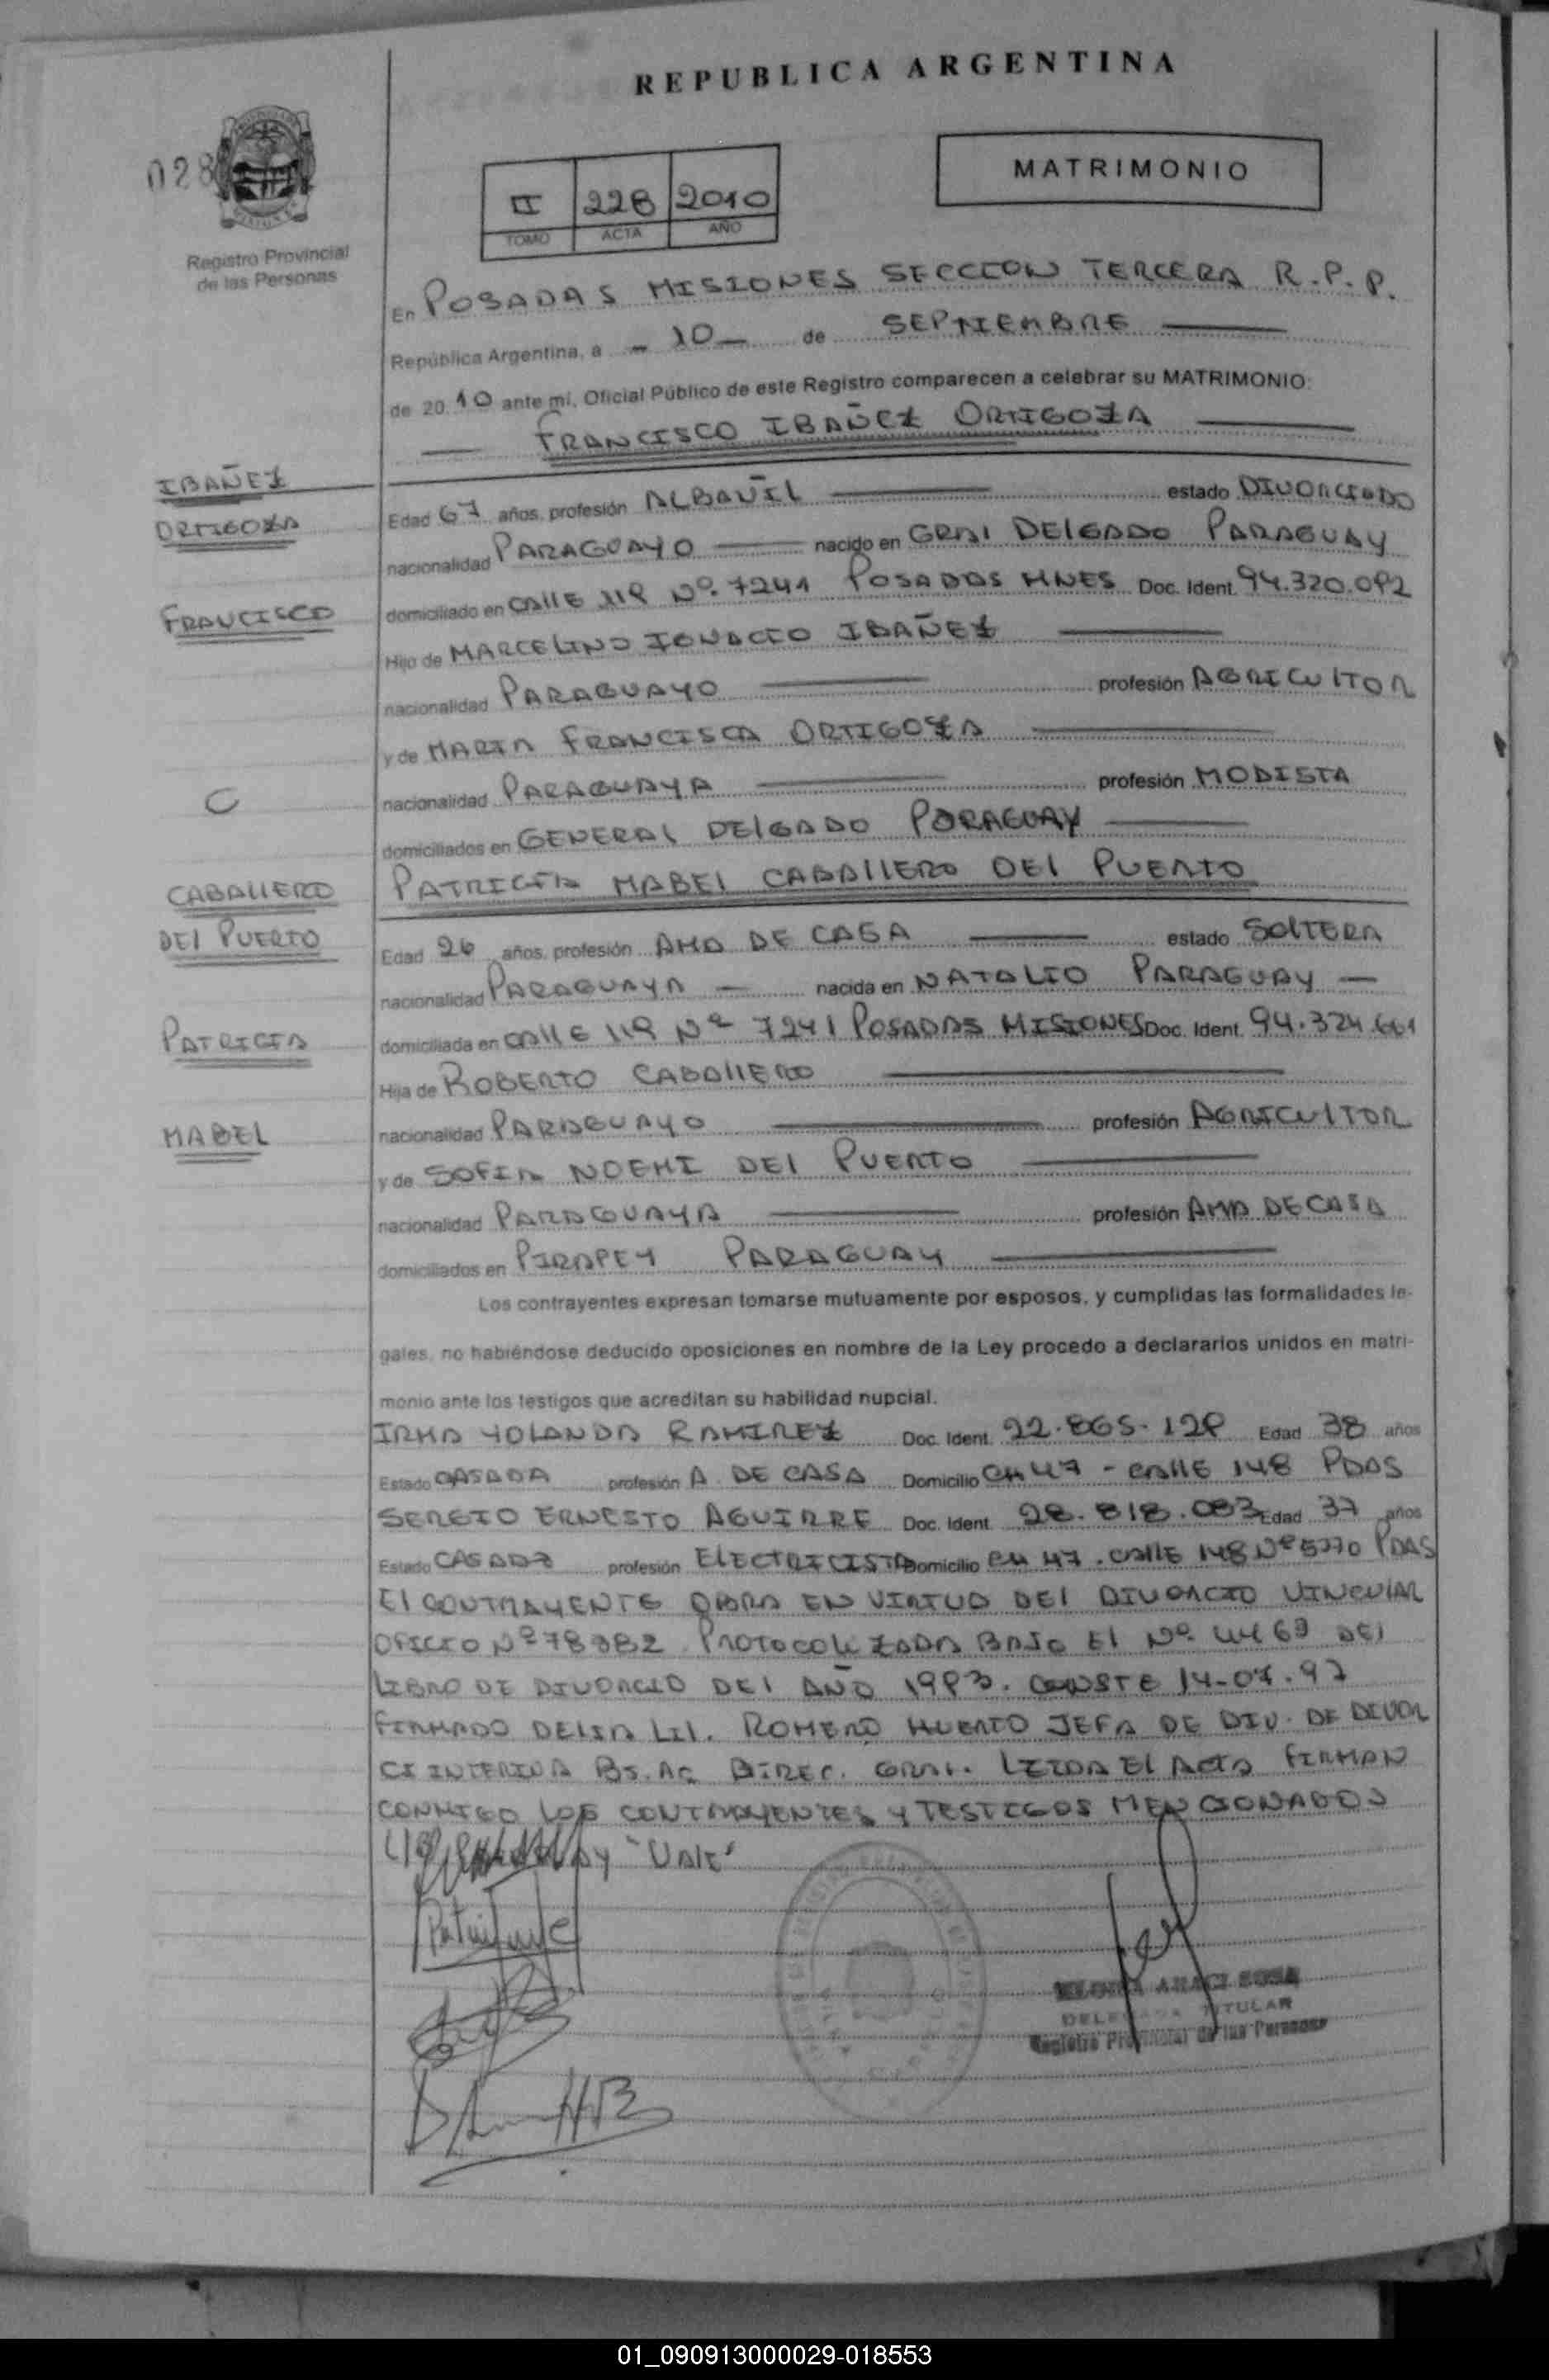 REPUBLICA ARGENTINA
028
MATRIMONIO
II 228 2010
TOMO ACTA AÑO
Registro Provincial
de las Personas
En POSADAS MISIONES SECCION TERCERA R.P.P.
República Argentina, a - 10 - de SEPTIEMBRE
de 20 10 ante mi, Oficial Público de este Registro comparecen a celebrar su MATRIMONIO:
FRANCISCO IBAÑEZ ORTIGOZA
IBAÑEZ
ORTIGOZA
FRANCISCO
Edad 67 años, profesión ALBAÑIL estado DIVORCIADO
nacionalidad PARAGUAYO nacido en GRAL DELGADO PARAGUAY
domiciliado en CALLE 119 Nº 7241 POSADAS MNES Doc. Ident. 94.320.092
Hijo de MARCELINO IGNACIO IBAÑEZ
nacionalidad PARAGUAYO profesión AGRICULTOR
y de MARIA FRANCISCA ORTIGOZA
nacionalidad PARAGUAYA profesión MODISTA
C
domiciliados en GENERAL DELGADO PARAGUAY
PATRICIA MABEL CABALLERO DEL PUERTO
CABALLERO
DEL PUERTO
PATRICIA
MABEL
Edad 26 años, profesión AMA DE CASA estado SOLTERA
nacionalidad PARAGUAYA - nacida en NATALIO PARAGUAY -
domiciliada en CALLE 119 Nº 7241 POSADAS MISIONES Doc. Ident. 94.324.661
Hija de ROBERTO CABALLERO
nacionalidad PARAGUAYO profesión AGRICULTOR
y de SOFIA NOEMI DEL PUERTO
nacionalidad PARAGUAYA profesión AMA DE CASA
domiciliados en PIRAPEY PARAGUAY
Los contrayentes expresan tomarse mutuamente por esposos, y cumplidas las formalidades le-
gales, no habiéndose deducido oposiciones en nombre de la Ley procedo a declararlos unidos en matri-
monio ante los testigos que acreditan su habilidad nupcial.
IRMA YOLANDA RAMIREZ Doc. Ident. 22.865.129 Edad 38 años
Estado CASADA profesión A. DE CASA Domicilio CH 47 - CALLE 148 PDAS
SERGIO ERNESTO AGUIRRE Doc. Ident. 28.818.083 Edad 37 años
Estado CASADO profesión ELECTRICISTA Domicilio CH 47. CALLE 148 Nº 5770 PDAS
El CONTRAYENTE OBRA EN VIRTUD DEL DIVORCIO VINCULAR
OFICIO Nº 78382 PROTOCOLIZADA BAJO El Nº 4469 DEL
LIBRO DE DIVORCIO DEL AÑO 1993. CONSTE 14-07.97
FIRMADO DELIA LIL. ROMERO HUERTO JEFA DE DIV. DE DIVOR
CI INTERINA BS. AS DIREC. GRAL. LEIDA EL ACTA FIRMAN
CONMIGO LOS CONTRAYENTES Y TESTIGOS MENCIONADOS
"VALE"
ARACI SOSA
DELEGADA TITULAR
Registro Provincial de las Personas
01_090913000029-018553